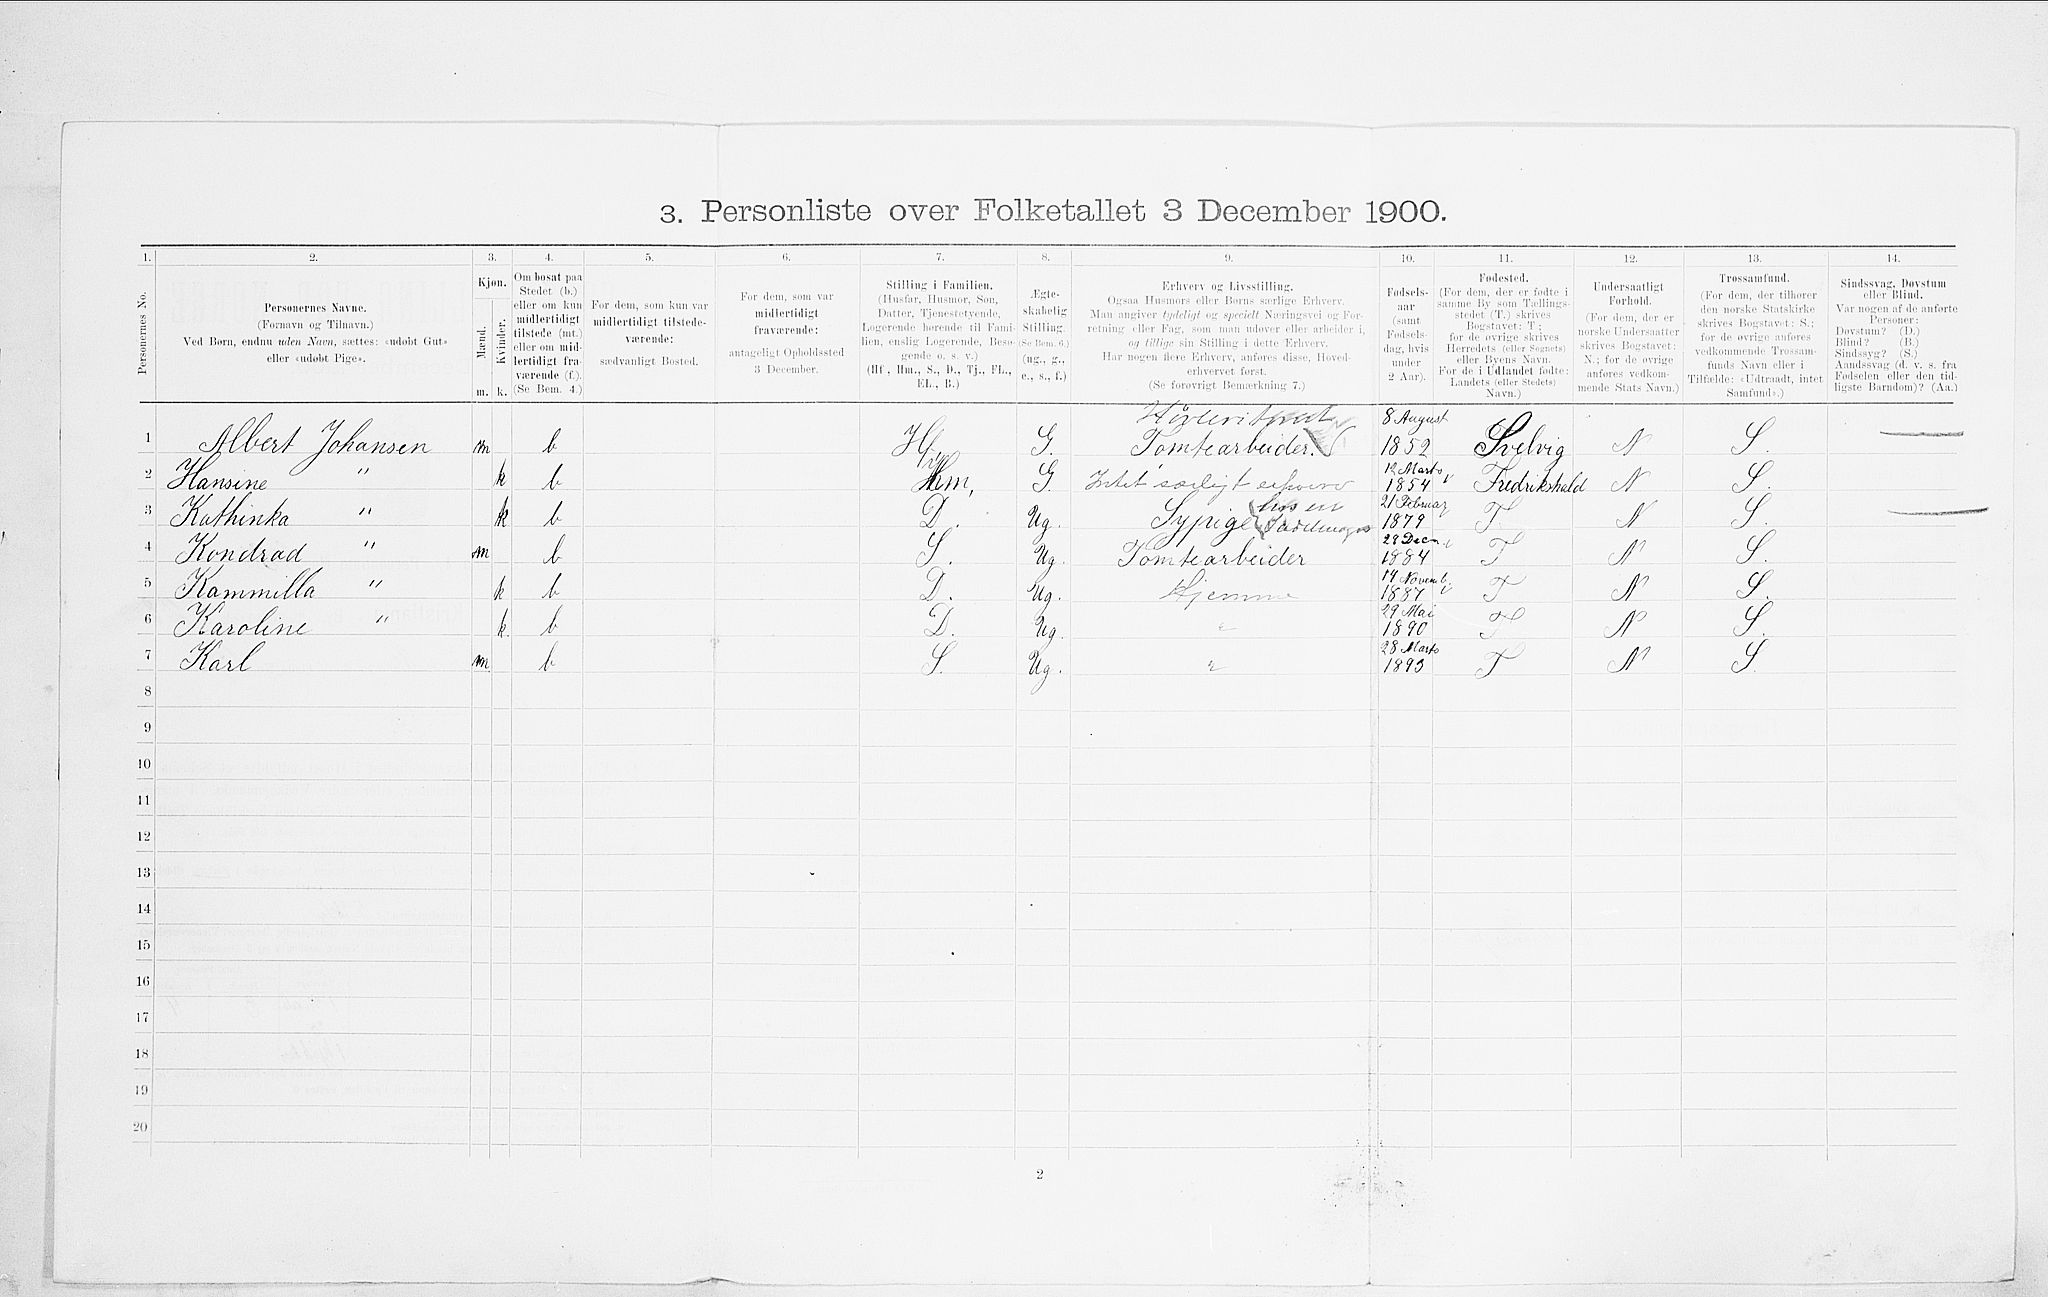 3. Personliste over Folketallet 3 December 1900.
1. 2. 3. 4. 5. 6. 7. 8. 9. 10. 11. 12. 13. 14.
Personernes No.
Personernes Navne.
(Fornavn og Tilnavn.)
Ved Børn, endnu uden Navn, sættes: «udøbt Gut»
eller «udøbt Pige».
Kjøn.
Mænd.
Kvinder.
m. k.
Om bosat paa
Stedet (b.)
eller om kun
midlertidigt
tilstede (mt.)
eller om mid-
lertidigt fra-
værende (f.).
(Se Bem. 4.)
For dem, som kun var
midlertidigt tilstede-
værende:
sædvanligt Bosted.
For dem, som var
midlertidigt
fraværende:
antageligt Opholdssted
3 December.
Stilling i Familien.
(Husfar, Husmor, Søn,
Datter, Tjenestetyende,
Logerende hørende til Fami-
lien, enslig Logerende, Besø-
gende o. s. v.)
(Hf., Hm., S., D., Tj., FL.,
EL., B.)
Ægte-
skabelig
Stilling.
(Se Bem. 6.)
(ug., g.,
e., s., f.)
Erhverv og Livsstilling.
Ogsaa Husmors eller Børns særlige Erhverv.
Man angiver tydeligt og specielt Næringsvei og For-
retning eller Fag, som man udøver eller arbeider i,
og tillige sin Stilling i dette Erhverv.
Har nogen flere Erhverv, anføres disse, Hoved-
erhvervet først.
(Se forøvrigt Bemærkning 7.)
Fødsels-
aar
(samt
Fødsels-
dag, hvis
under
2 Aar).
Fødested.
(For dem, der er fødte i
samme By som Tællings-
stedet (T.) skrives
Bogstavet: T;
for de øvrige skrives
Herredets (eller Sognets)
eller Byens Navn.
For de i Udlandet fødte:
Landets (eller Stedets)
Navn.)
Undersaatligt
Forhold.
(For dem, der er
norske Undersaatter
skrives Bogstavet:
N.; for de øvrige
anføres vedkom-
mende Stats Navn.)
Trossamfund.
(For dem, der tilhører
den norske Statskirke
skrives Bogstavet: S.;
for de øvrige anføres
vedkommende Trossam-
funds Navn eller i
Tilfælde: «Udtraadt, intet
Samfund».)
Sindssvag, Døvstum
eller Blind.
Var nogen af de anførte
Personer:
Døvstum? (D.)
Blind? (B.)
Sindssyg? (S.)
Aandssvag (d. v. s. fra
Fødselen eller den tid-
ligste Barndom)? (Aa.)
1 Albert Johansen m b Hf G. Tomtearbeider. 8 August 1852 Svelvig N S.
2 Hansine " k b Hm, G. Intet særligt erhverv 12 Marts 1854 Fredrikshald N S.
3 Kathinka " k b D. Ug. Sypige hos en 21 Februar 1879 T N S.
4 Kondrad " m b S. Ug. Tomtearbeider 28 Decm 1884 T N S.
5 Kammilla " k b D. Ug. Hjemme 14 Novemb 1887 T N S.
6 Karoline " k. b D. Ug. " 29 Mai 1890 T N S.
7 Karl m b S. Ug. " 28 Marts 1893 T N S.
8
9
10
11
12
13
14
15
16
17
18
19
20
2